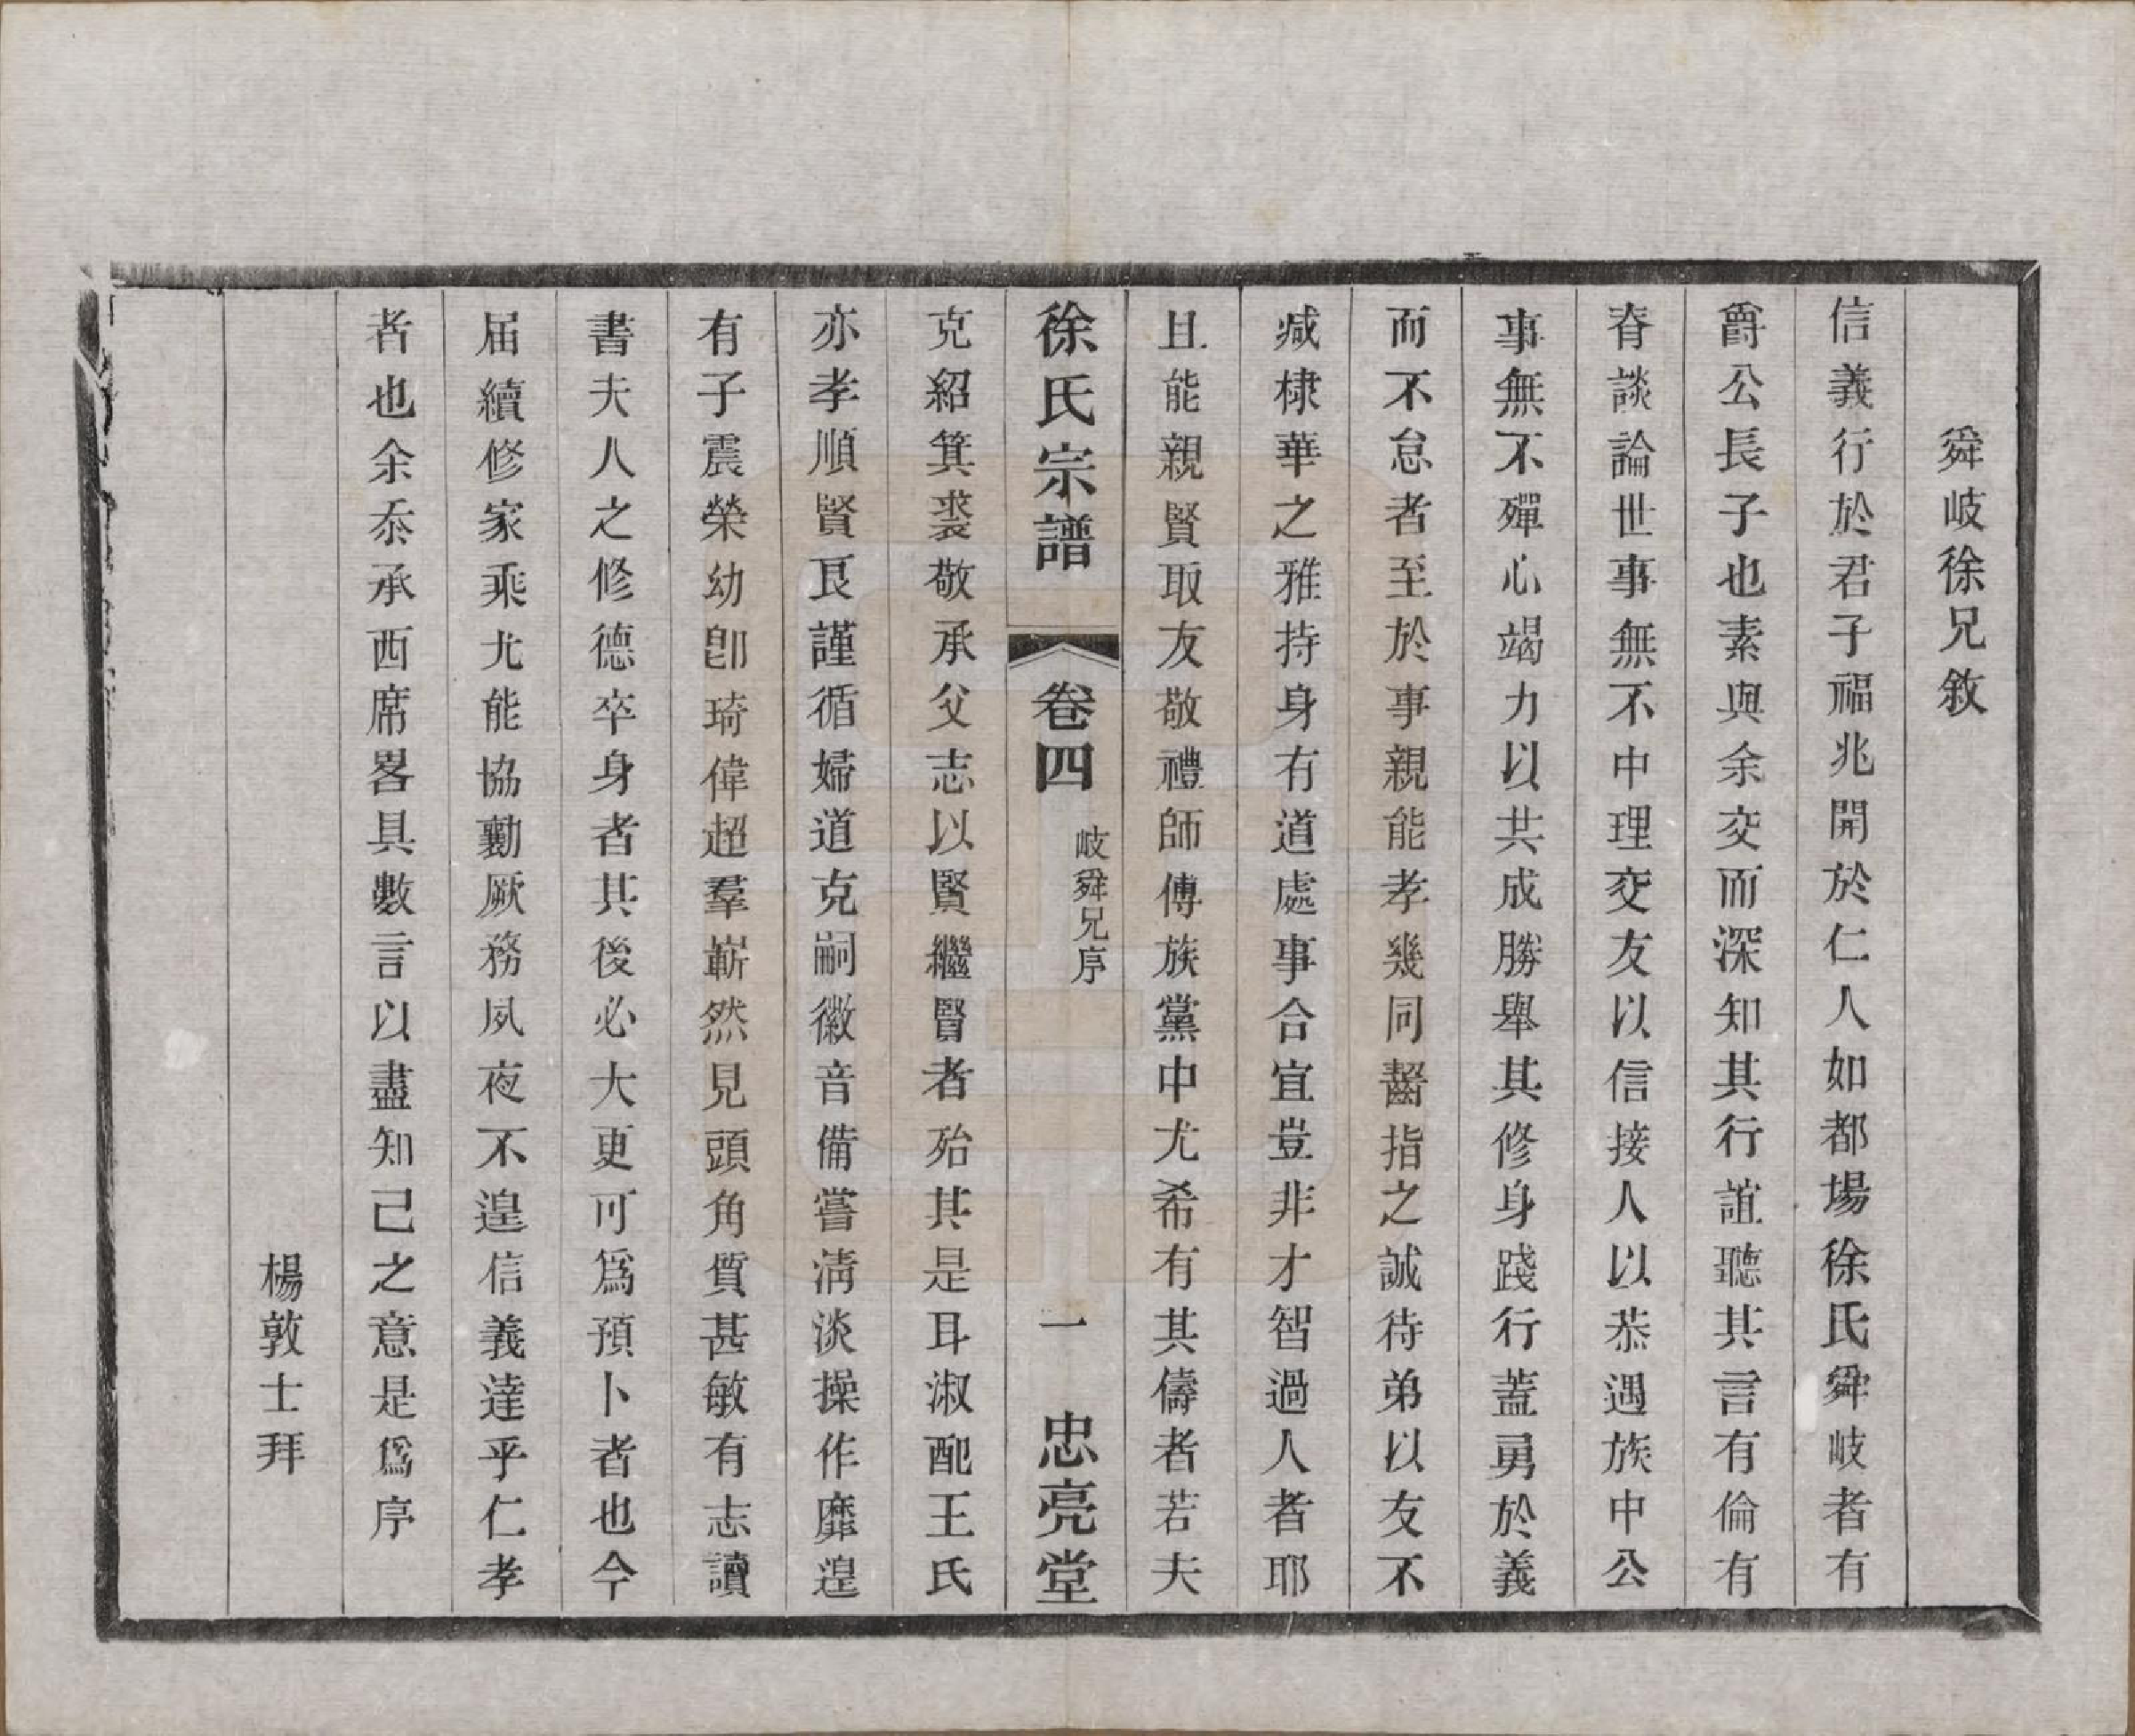 舜岐徐兄敘
信義行於君子福兆開於仁人如都場徐氏舜岐者有
爵公長子也素與余交而深知其行誼聽其言有倫有
脊談論世事無不中理交友以信接人以恭遇族中公
事無不殫心竭力以共成勝舉其修身踐行蓋勇於義
而不怠者至於事親能孝幾同齧指之誠待弟以友不
減棣華之雅持身有道處事合宜豈非才智過人者耶
且能親賢取友敬禮師傅族黨中尤希有其儔者若夫
徐氏宗譜 卷四 岐舜兄序 一 忠亮堂
克紹箕裘敬承父志以賢繼賢者殆其是耳淑配王氏
亦孝順賢良謹循婦道克嗣徽音備嘗清淡操作靡遑
有子震榮幼卽琦偉超羣嶄然見頭角質甚敏有志讀
書夫人之修德卒身者其後必大更可爲預卜者也今
屆續修家乘尤能協勷厥務夙夜不遑信義達乎仁孝
者也余忝承西席畧具數言以盡知己之意是爲序
楊敦士拜